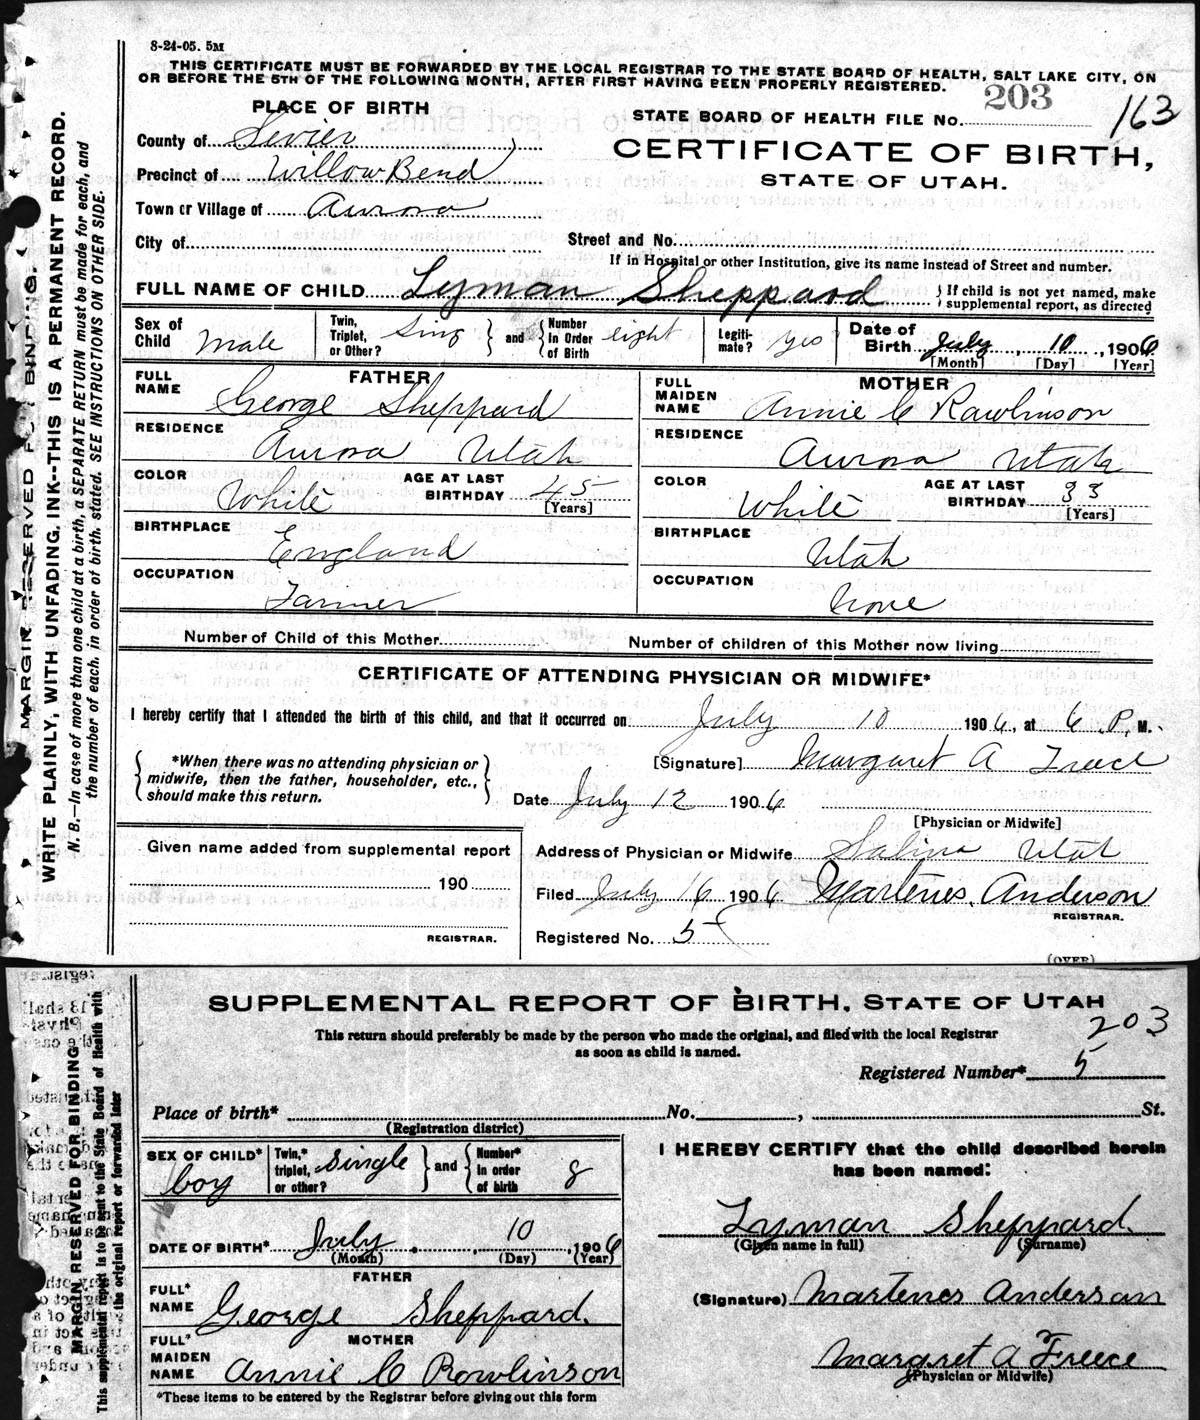 8-24-05. 5M
THIS CERTIFICATE MUST BE FORWARDED BY THE LOCAL REGISTRAR TO THE STATE BOARD OF HEALTH, SALT LAKE CITY, ON
OR BEFORE THE 5TH OF THE FOLLOWING MONTH, AFTER FIRST HAVING BEEN PROPERLY REGISTERED.
MARGIN RESERVED FOR BINDING.
WRITE PLAINLY, WITH UNFADING, INK--THIS IS A PERMANENT RECORD.
N. B.—In case of more than one child at a birth, a SEPARATE RETURN must be made for each, and
the number of each, in order of birth, stated. SEE INSTRUCTIONS ON OTHER SIDE.
PLACE OF BIRTH
County of Sevier
Precinct of Willow Bend
Town or Village of Aurora
City of
203
STATE BOARD OF HEALTH FILE No. 163
CERTIFICATE OF BIRTH,
STATE OF UTAH.
Street and No.
If in Hospital or other Institution, give its name instead of Street and number.
FULL NAME OF CHILD Lyman Sheppard } If child is not yet named, make supplemental report, as directed
Sex of Child Male
Twin, Triplet, or Other? Sing } and { Number in Order of Birth eight
Legitimate? yes
Date of Birth July, 10, 1906
[Month] [Day] [Year]
FATHER
FULL NAME George Sheppard
RESIDENCE Aurora Utah
COLOR White AGE AT LAST BIRTHDAY 45 [Years]
BIRTHPLACE England
OCCUPATION Farmer
MOTHER
FULL MAIDEN NAME Annie C Rawlinson
RESIDENCE Aurora Utah
COLOR White AGE AT LAST BIRTHDAY 33 [Years]
BIRTHPLACE Utah
OCCUPATION None
Number of Child of this Mother
Number of children of this Mother now living
CERTIFICATE OF ATTENDING PHYSICIAN OR MIDWIFE*
I hereby certify that I attended the birth of this child, and that it occurred on July 10 1906, at 6 P. M.
{ *When there was no attending physician or midwife, then the father, householder, etc., should make this return. }
[Signature] Margaret A Freece
Date July 12 1906
[Physician or Midwife]
Given name added from supplemental report
190
REGISTRAR.
Address of Physician or Midwife Salina Utah
Filed July 16 1906 Martenes Anderson
REGISTRAR.
Registered No. 5
(OVER)
MARGIN RESERVED FOR BINDING
This supplemental report is to be sent to the State Board of Health with
the original report or forwarded later
SUPPLEMENTAL REPORT OF BIRTH, STATE OF UTAH
This return should preferably be made by the person who made the original, and filed with the local Registrar
as soon as child is named.
203
Registered Number* 5
Place of birth* No. , St.
(Registration district)
SEX OF CHILD* boy
Twin,* triplet, or other? single } and { Number* in order of birth 8
DATE OF BIRTH* July, 10, 1906
(Month) (Day) (Year)
FATHER
FULL* NAME George Sheppard.
MOTHER
FULL* MAIDEN NAME Annie C Rowlinson
*These items to be entered by the Registrar before giving out this form
I HEREBY CERTIFY that the child described herein
has been named:
Lyman Sheppard
(Given name in full) (Surname)
(Signature) Martenes Anderson
Margret A Freece
(Physician or Midwife)